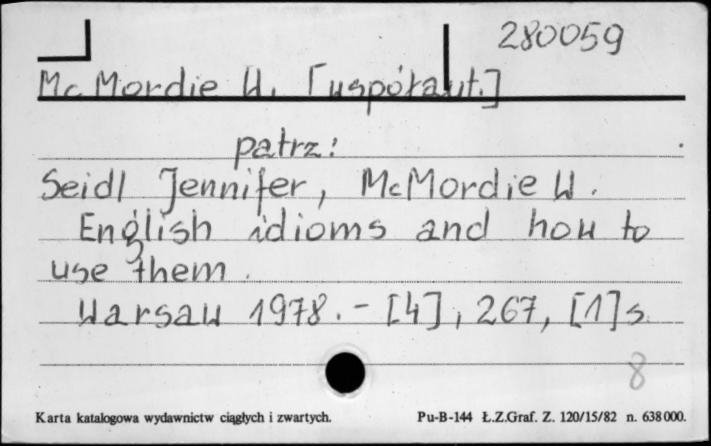 280059
Mc Mordie W. [współaut.]
patrz:
Seidl Jennifer, McMordie W.
English idioms and how to
use them.
Warsaw 1978. - [4], 267, [1] s.
8
Karta katalogowa wydawnictw ciągłych i zwartych. Pu-B-144 Ł.Z.Graf. Z. 120/15/82 n. 638000.